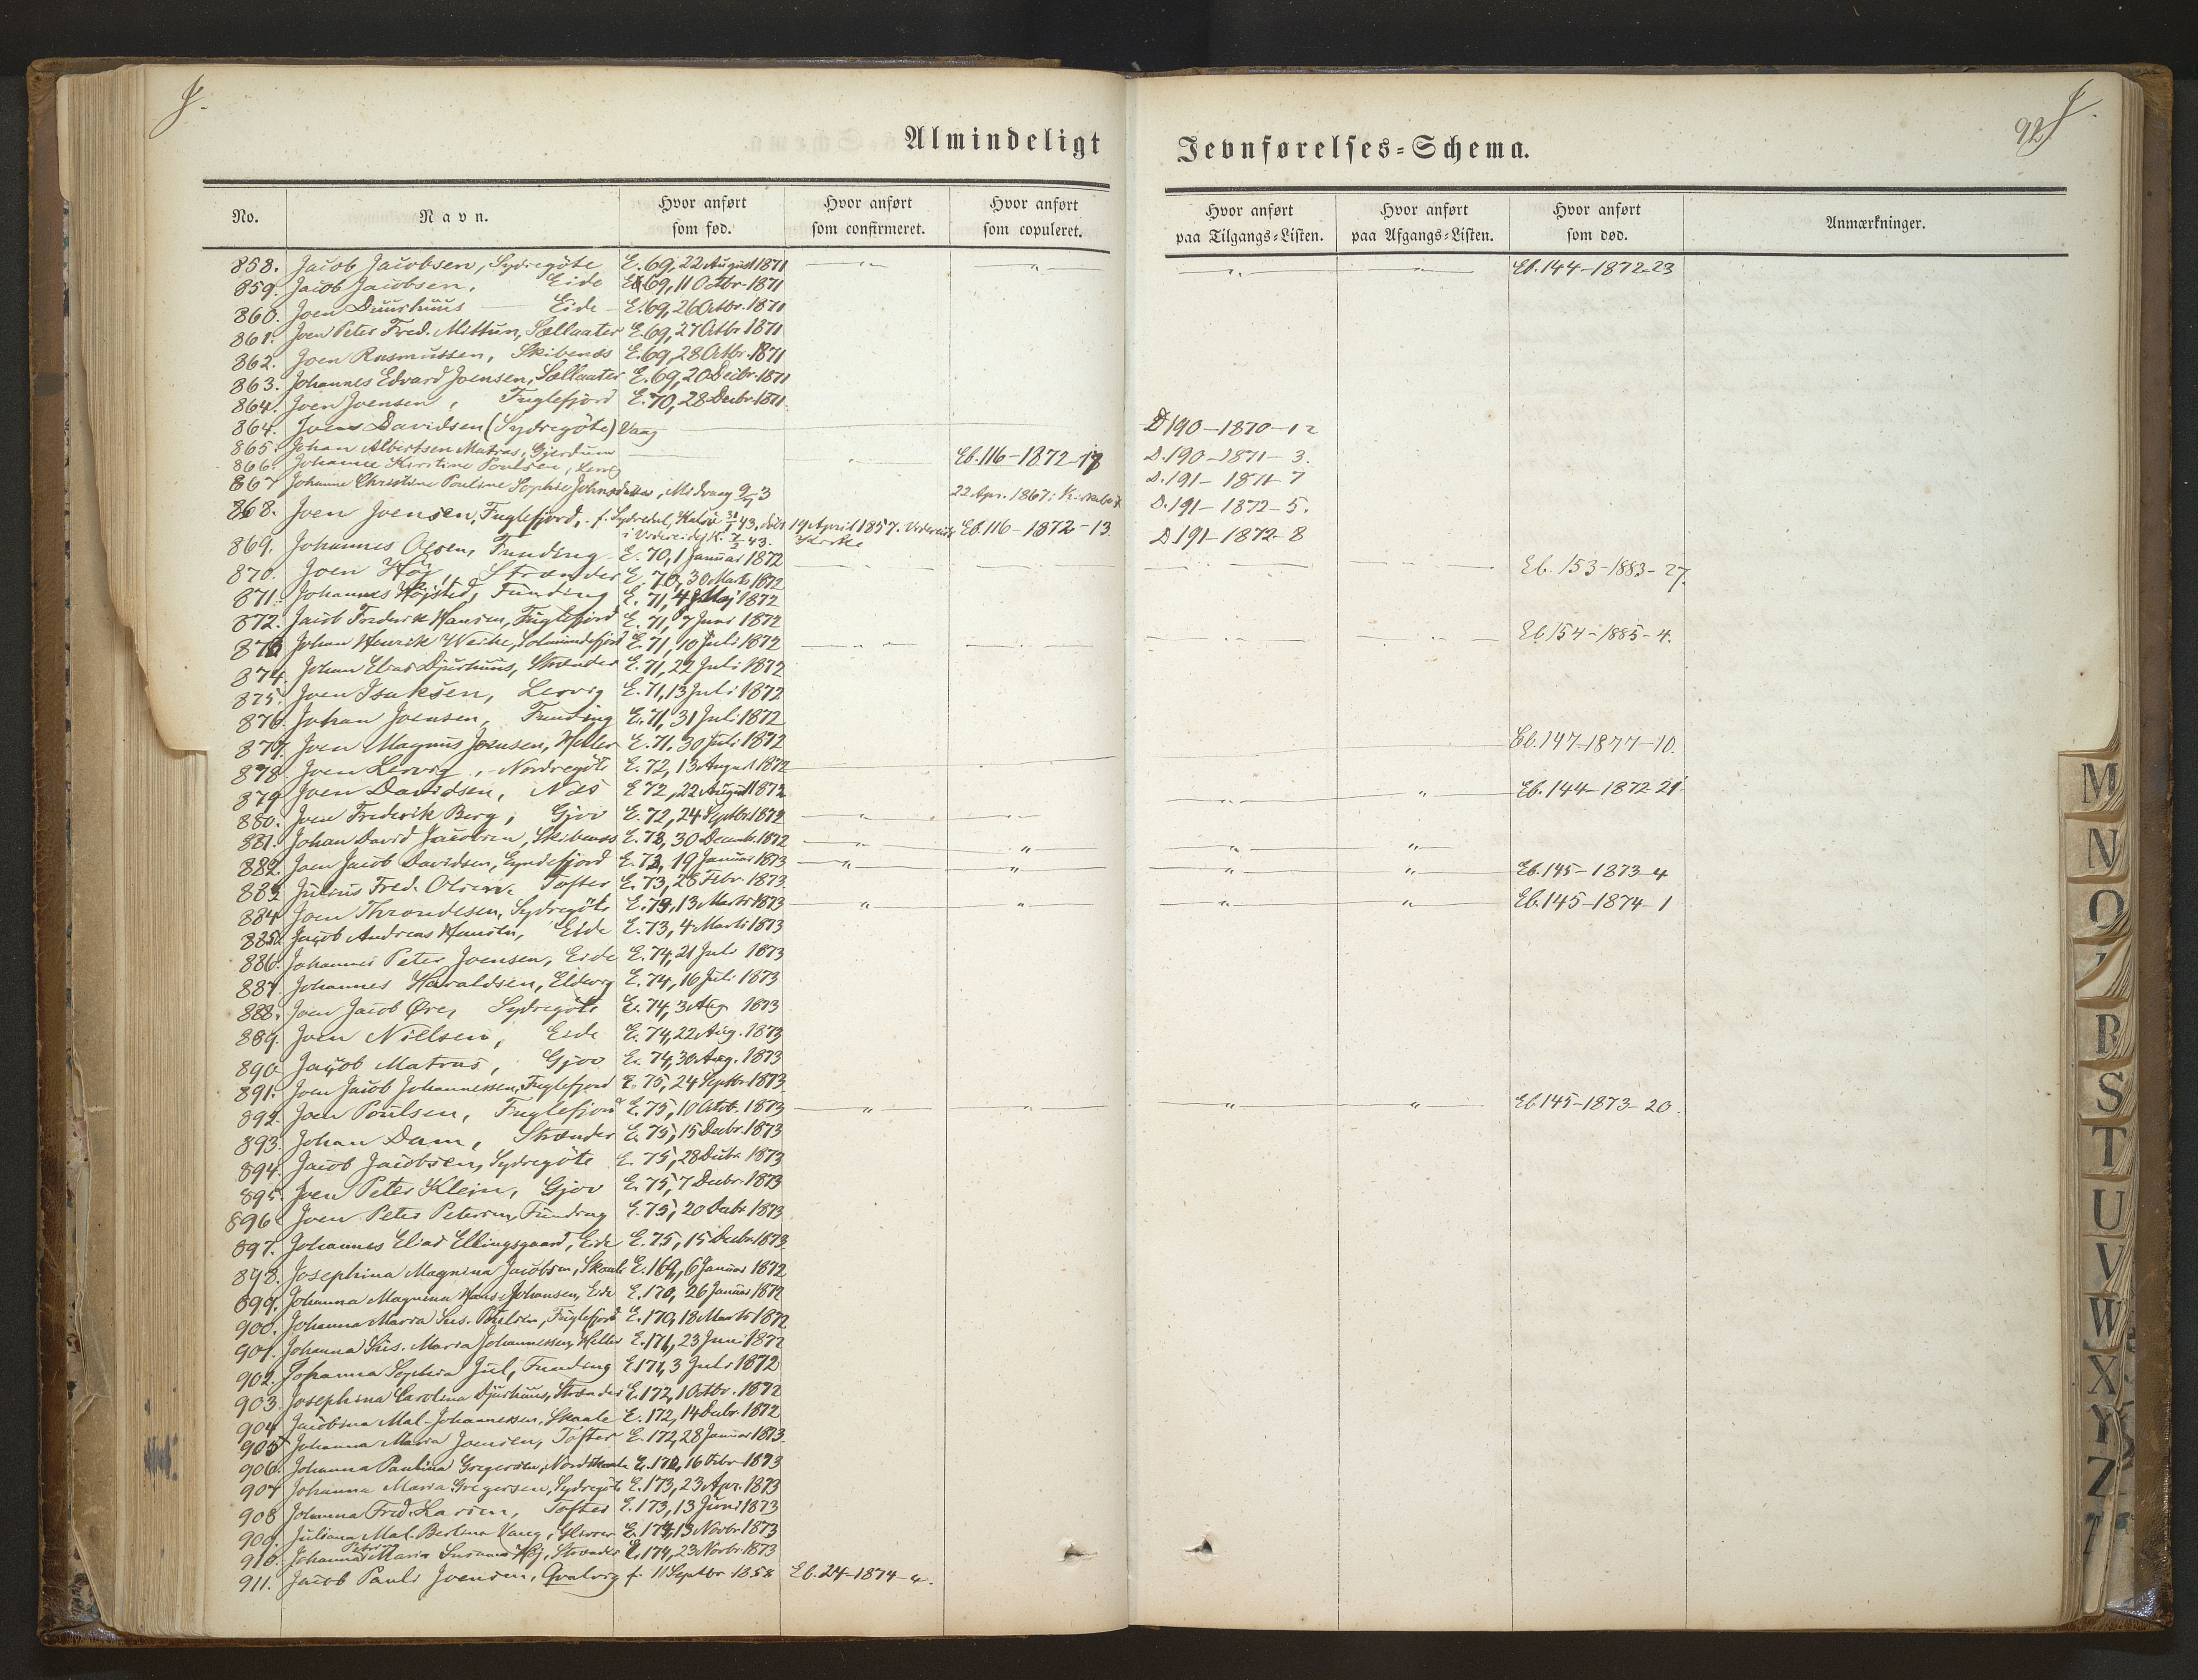 J.
92 J.
Almindeligt
Jevnførelses=Schema.
No.
Navn.
Hvor anført som fød.
Hvor anført som confirmeret.
Hvor anført som copuleret.
Hvor anført paa Tilgangs=Listen.
Hvor anført paa Afgangs=Listen.
Hvor anført som død.
Anmærkninger.
858. Jacob Jacobsen, Sydregöte E. 69, 22 August 1871 — „ — „ — „ — „ — Eb. 144-1872-23
859. Jacob Jacobsen, Eide E. 69, 11 Octbr. 1871
860. Joen Duurhuus — Eide — E. 69, 26 Octbr. 1871
861. Joen Peter Fred. Mittun, Sællaater E. 69, 27 Octbr 1871
862. Joen Rasmussen, Skibenæs E. 69, 28 Octbr. 1871
863. Johannes Edvard Joensen, Sællaater E. 69, 20 Decbr. 1871
864. Joen Joensen, Fuglefjord E. 70, 28 Decbr. 1871
864. Joens Davidsen (Sydregöte) Vaag D 190-1870-12
865. Johan Albertsen Matras, Gjerdum Eb. 116-1872-18 D. 190-1871-3.
866. Johanne Kirstine Poulsen, Lervg D. 191-1871-7
867 Johanne Christine Pouline Sophie Johnsdatter, Midvaag 22 Apr. 1867 i D. 191-1872-5.
868. Joen Joensen, Fuglefjord, f. Sydredal, Kalsö 43, 19 April 1857. Kirke Eb. 116-1872-13. D 191-1872-8
869. Johannes Olsen, Funding E. 70, 1 Januar 1872
870. Joen Höj, Strænder E. 70, 30 Marts 1872 Eb. 153-1883-27.
871. Johannes Höjsted, Funding E. 71, 4 Maj 1872
872. Jacob Frederik Hansen, Fuglefjord E. 71, 7 Juni 1872
873. Johan Henrik Weihe, Solmundefjord E. 71, 10 Juli 1872 Eb 154-1885-4.
874. Johan Elias Djurhuus, Strænder E. 71, 22 Juli 1872
875. Joen Isaksen, Lervig E. 71, 13 Juli 1872
876. Johan Joensen, Funding E. 71, 31 Juli 1872
877. Joen Magnus Joensen, Heller E. 71, 30 Juli 1872 Eb. 147-1877-10.
878. Joen Lervig, Nordregöte E. 72, 13 August 1872
879 Joen Davidsen, Næs E 72, 22 August 1872 „ „ Eb. 144-1872-21
880. Joen Frederik Berg, Gjov E. 72, 24 Septbr. 1872
881. Johan David Jacobsen, Skibenæs E. 72, 30 Decembr. 1872 „ „ „ „
882. Joen Jacob Davidsen, Lyndefjord E. 72, 19 Januar 1873 „ „ „ „ Eb. 145-1873-4
883. Julius Fred. Olsen. Tofter E. 73, 28 Febr. 1873.
884. Joen Throndesen, Sydregöte E. 73, 13 Marts 1873 „ „ „ „ Eb. 145-1874-1
885. Jacob Andreas Hansen, Eide E. 73, 4 Marts 1873
886. Johannes Peter Joensen, Eide E. 74, 21 Juli 1873
887. Johannes Haraldsen, Eldevig E. 74, 16 Juli 1873
888. Joen Jacob Øre, Sydregöte E. 74, 3 Aug. 1873
889. Joen Nielsen, Eide E. 74, 22 Aug. 1873
890. Jacob Matras, Gjov E. 74, 30 Aug. 1873
891. Joen Jacob Johannessen, Fuglefjord E. 75, 24 Septbr 1873
892. Joen Poulsen, Fuglefjord E. 75, 10 Octob. 1873 „ „ „ „ Eb 145-1873-20.
893. Johan Dam, Strænder E. 75, 15 Decbr. 1873
894. Jacob Jacobsen, Sydregöte E. 75, 28 Decbr. 1873
895. Joen Peter Klein, Gjov E. 75, 7 Decbr. 1873
896. Joen Peter Petersen, Funding E. 75, 20 Decbr 1873
897. Johannes Elias Ellingsgaard, Eide E. 75, 15 Decbr. 1873.
898. Josephina Magnina Jacobsen, Skaale E. 169, 6 Januar 1872
899. Johanna Magnina Hans Johansen, Eide E. 170, 26 Januar 1872
900. Johanna Maria Sus. Poulsen, Fuglefjord E. 170, 18 Marts 1872
901. Johanna Sus. Maria Johannessen, Heller E. 171, 23 Juni 1872
902. Johanna Sophia Jul, Funding E. 171, 3 Juli 1872
903. Josephina Carolina Djurhuus, Strænder E. 172, 1 Octbr. 1872
904 Jacobina Mal. Johannessen, Skaale E. 172, 14 Decbr. 1872
905 Johanna Maria Joensen, Tofter E. 172, 28 Januar 1873.
906. Johanna Paulina Gregersen, Nordskaale E. 172, 16 Febr. 1873
907 Johanna Maria Gregersen, Sydregöte E. 173, 23 Apr. 1873
908 Johanna Fred. Larsen, Tofter E. 173, 13 Juni 1873
909. Juliana Mal. Berlina Vang, Glibrer E. 174, 13 Novbr. 1873
910. Johanna Petrina Maria Susanna Höj, Strænder E. 174, 23 Novbr. 1873
911. Jacob Pauli Joensen, Qvalvig f. 11 Septbr 1858 Eb. 24-1874-4.
M
N
O
R
S
T
U
V
W
X
Y
Z